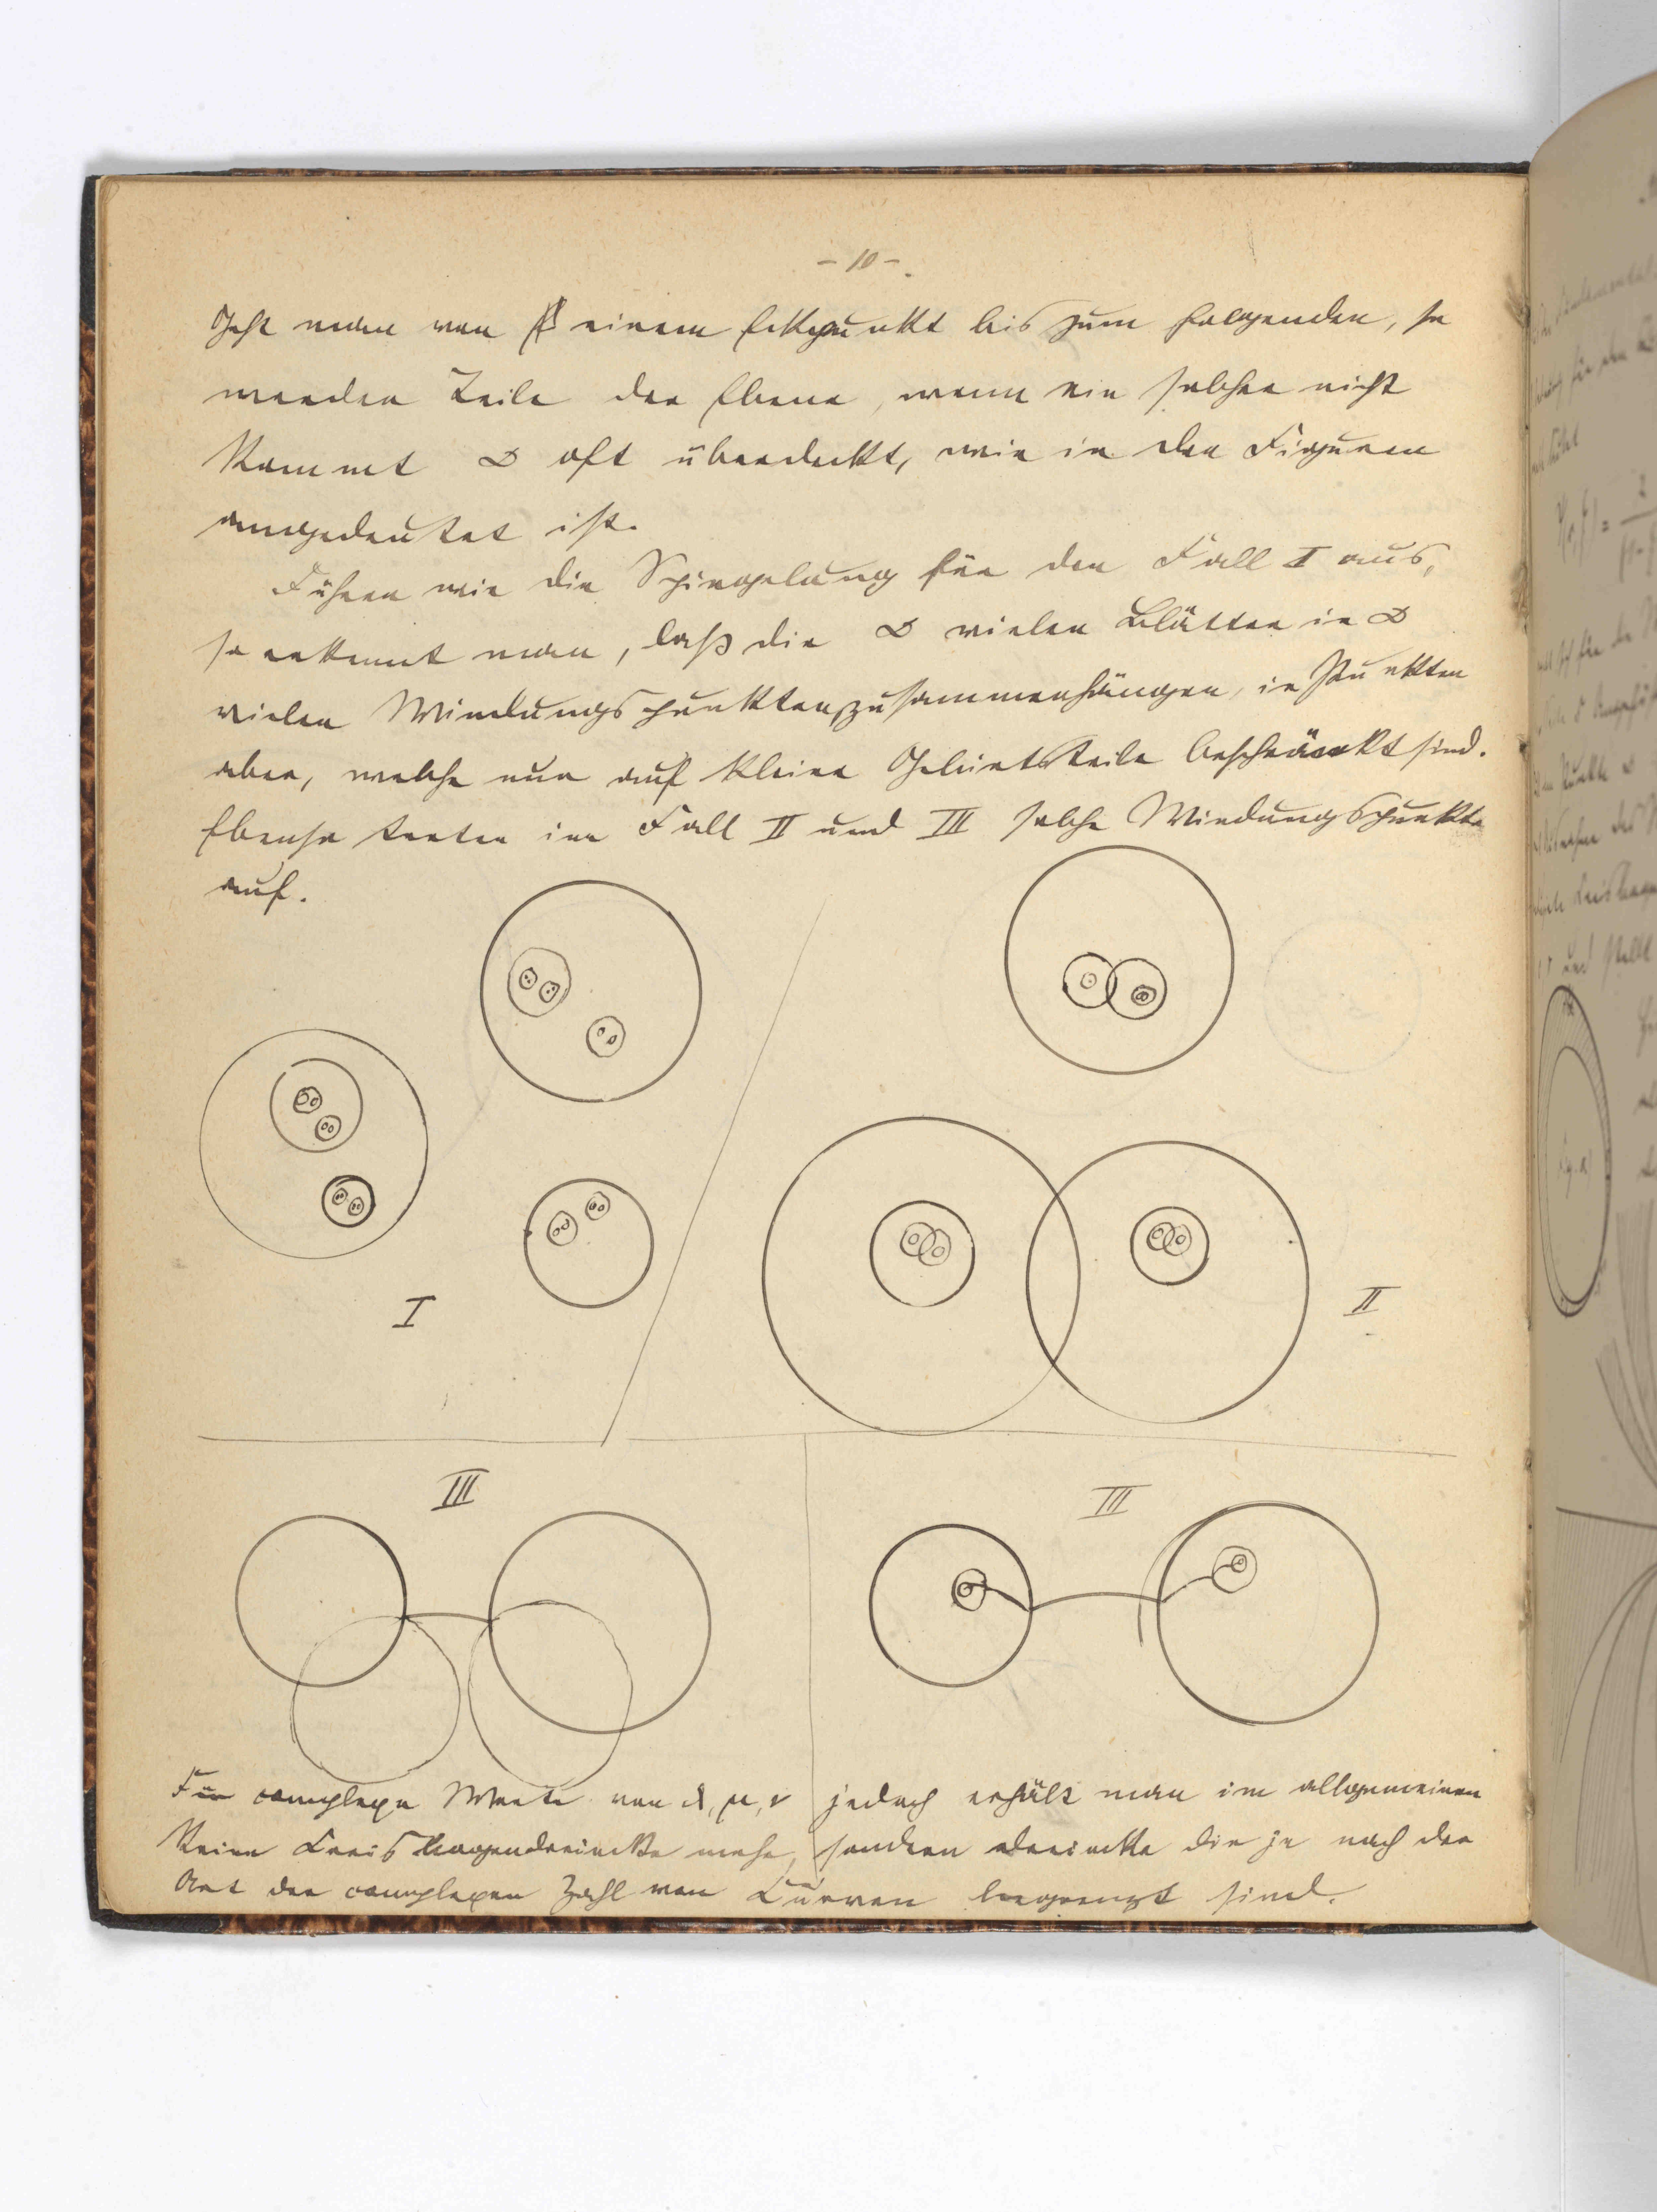 - 10 -.
Geht man von einem Eckpunkt bis zum folgenden, so
werden Teile der Ebene, wenn ein solcher nicht
kommt ∞ oft überdeckt, wie in den Figuren
angedeutet ist.
Führen wir die Spiegelung für den Fall I aus,
so erkennt man, daß die ∞ vielen Blätter in ∞
vielen Windungspunkten zusammenhängen, in Punkten
aber, welche nur auf kleine Gebietsteile beschränkt sind.
Ebenso treten im Fall II und III solche Windungspunkte
auf.
I
II
III
III
Für complexe Werte von λ, μ, ν jedoch erhält man im allgemeinen
keine Kreisbogendreiecke mehr, sondern Dreiecke die je nach der
Art der complexen Zahl von Curven begrenzt sind.